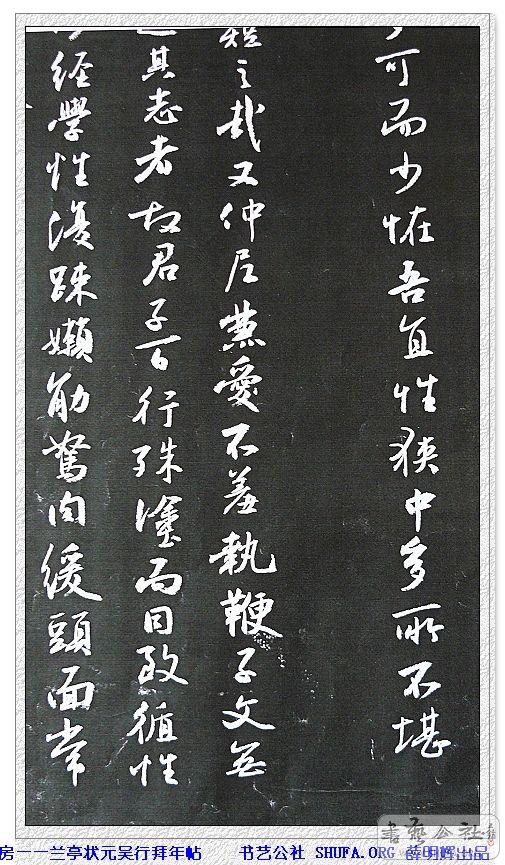 可而少怪吾直性狹中多所不堪
短之哉又仲尼兼愛不羞執鞭子文無
其志者故君子百行殊塗而同致循性
經學性復踈嬾筋駑肉緩頭面常
書藝公社
房一一兰亭状元吴行拜年帖 书艺公社 SHUFA.ORG 薛明辉出品